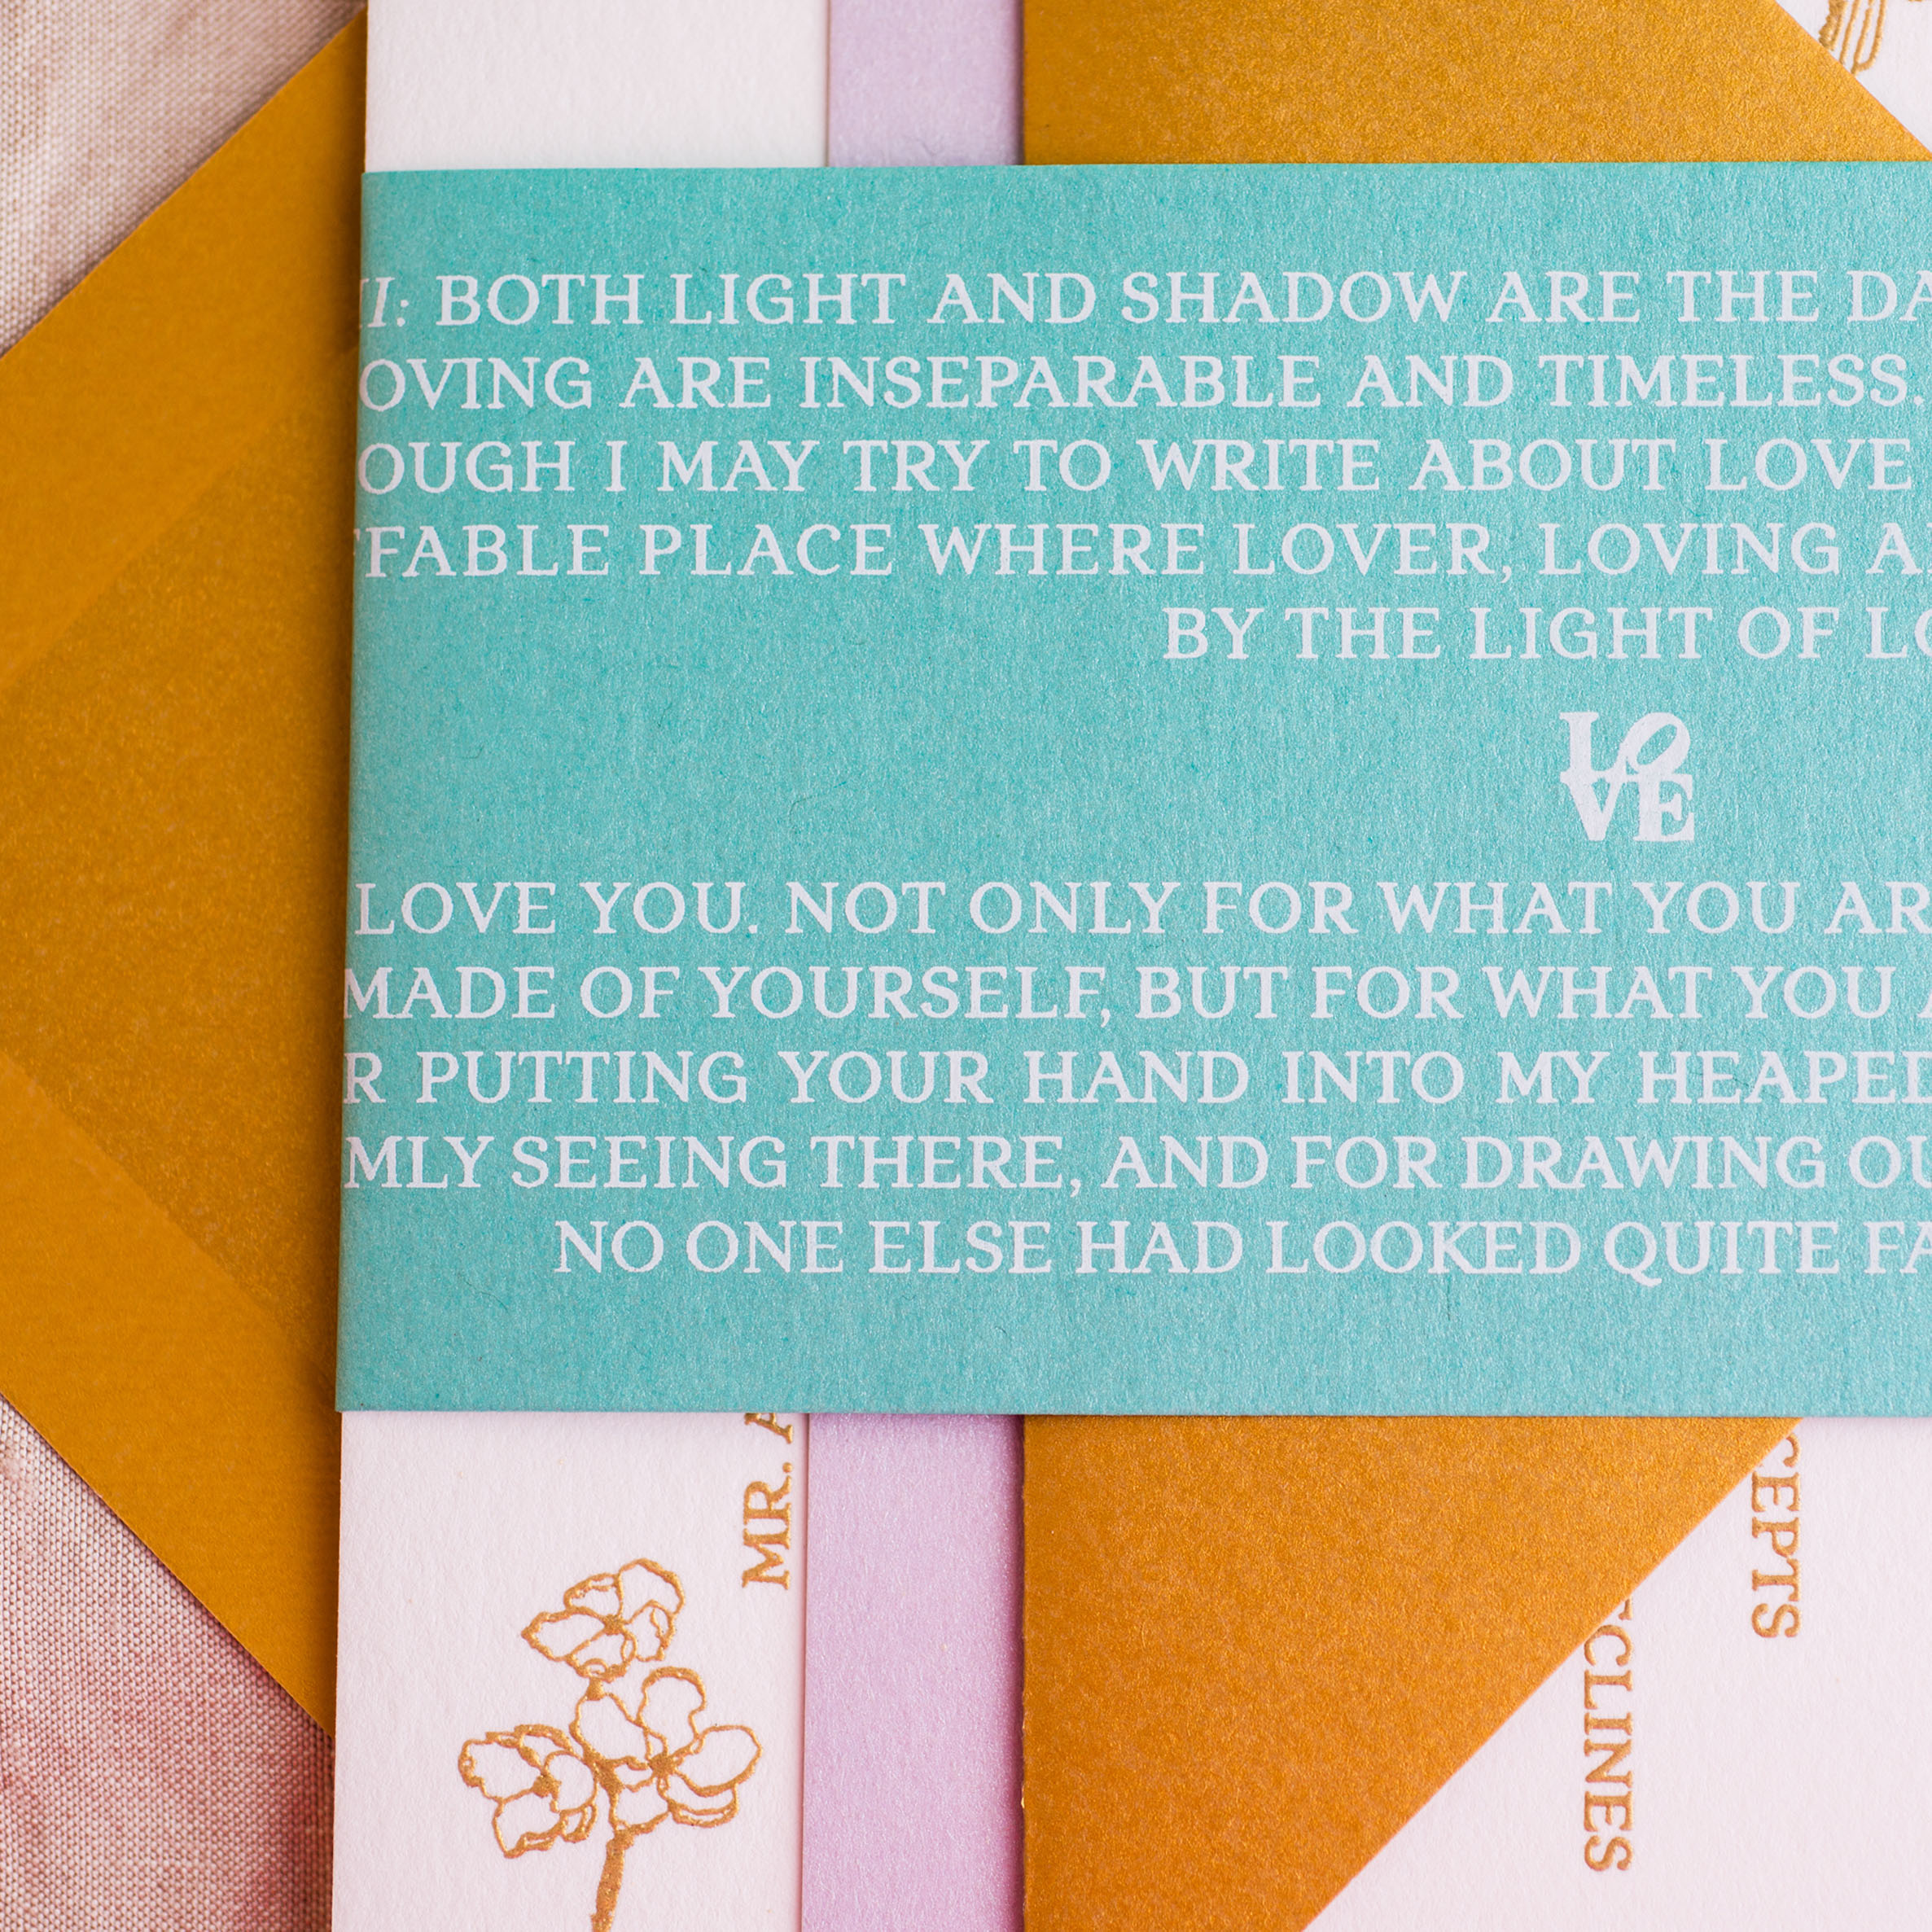 I: BOTH LIGHT AND SHADOW ARE THE DA
OVING ARE INSEPARABLE AND TIMELESS.
OUGH I MAY TRY TO WRITE ABOUT LOVE
FABLE PLACE WHERE LOVER, LOVING A
BY THE LIGHT OF LO
LO
VE
LOVE YOU. NOT ONLY FOR WHAT YOU AR
MADE OF YOURSELF, BUT FOR WHAT YOU
R PUTTING YOUR HAND INTO MY HEAPED
MLY SEEING THERE, AND FOR DRAWING OU
NO ONE ELSE HAD LOOKED QUITE FA
MR. A
CEPTS
CLINES